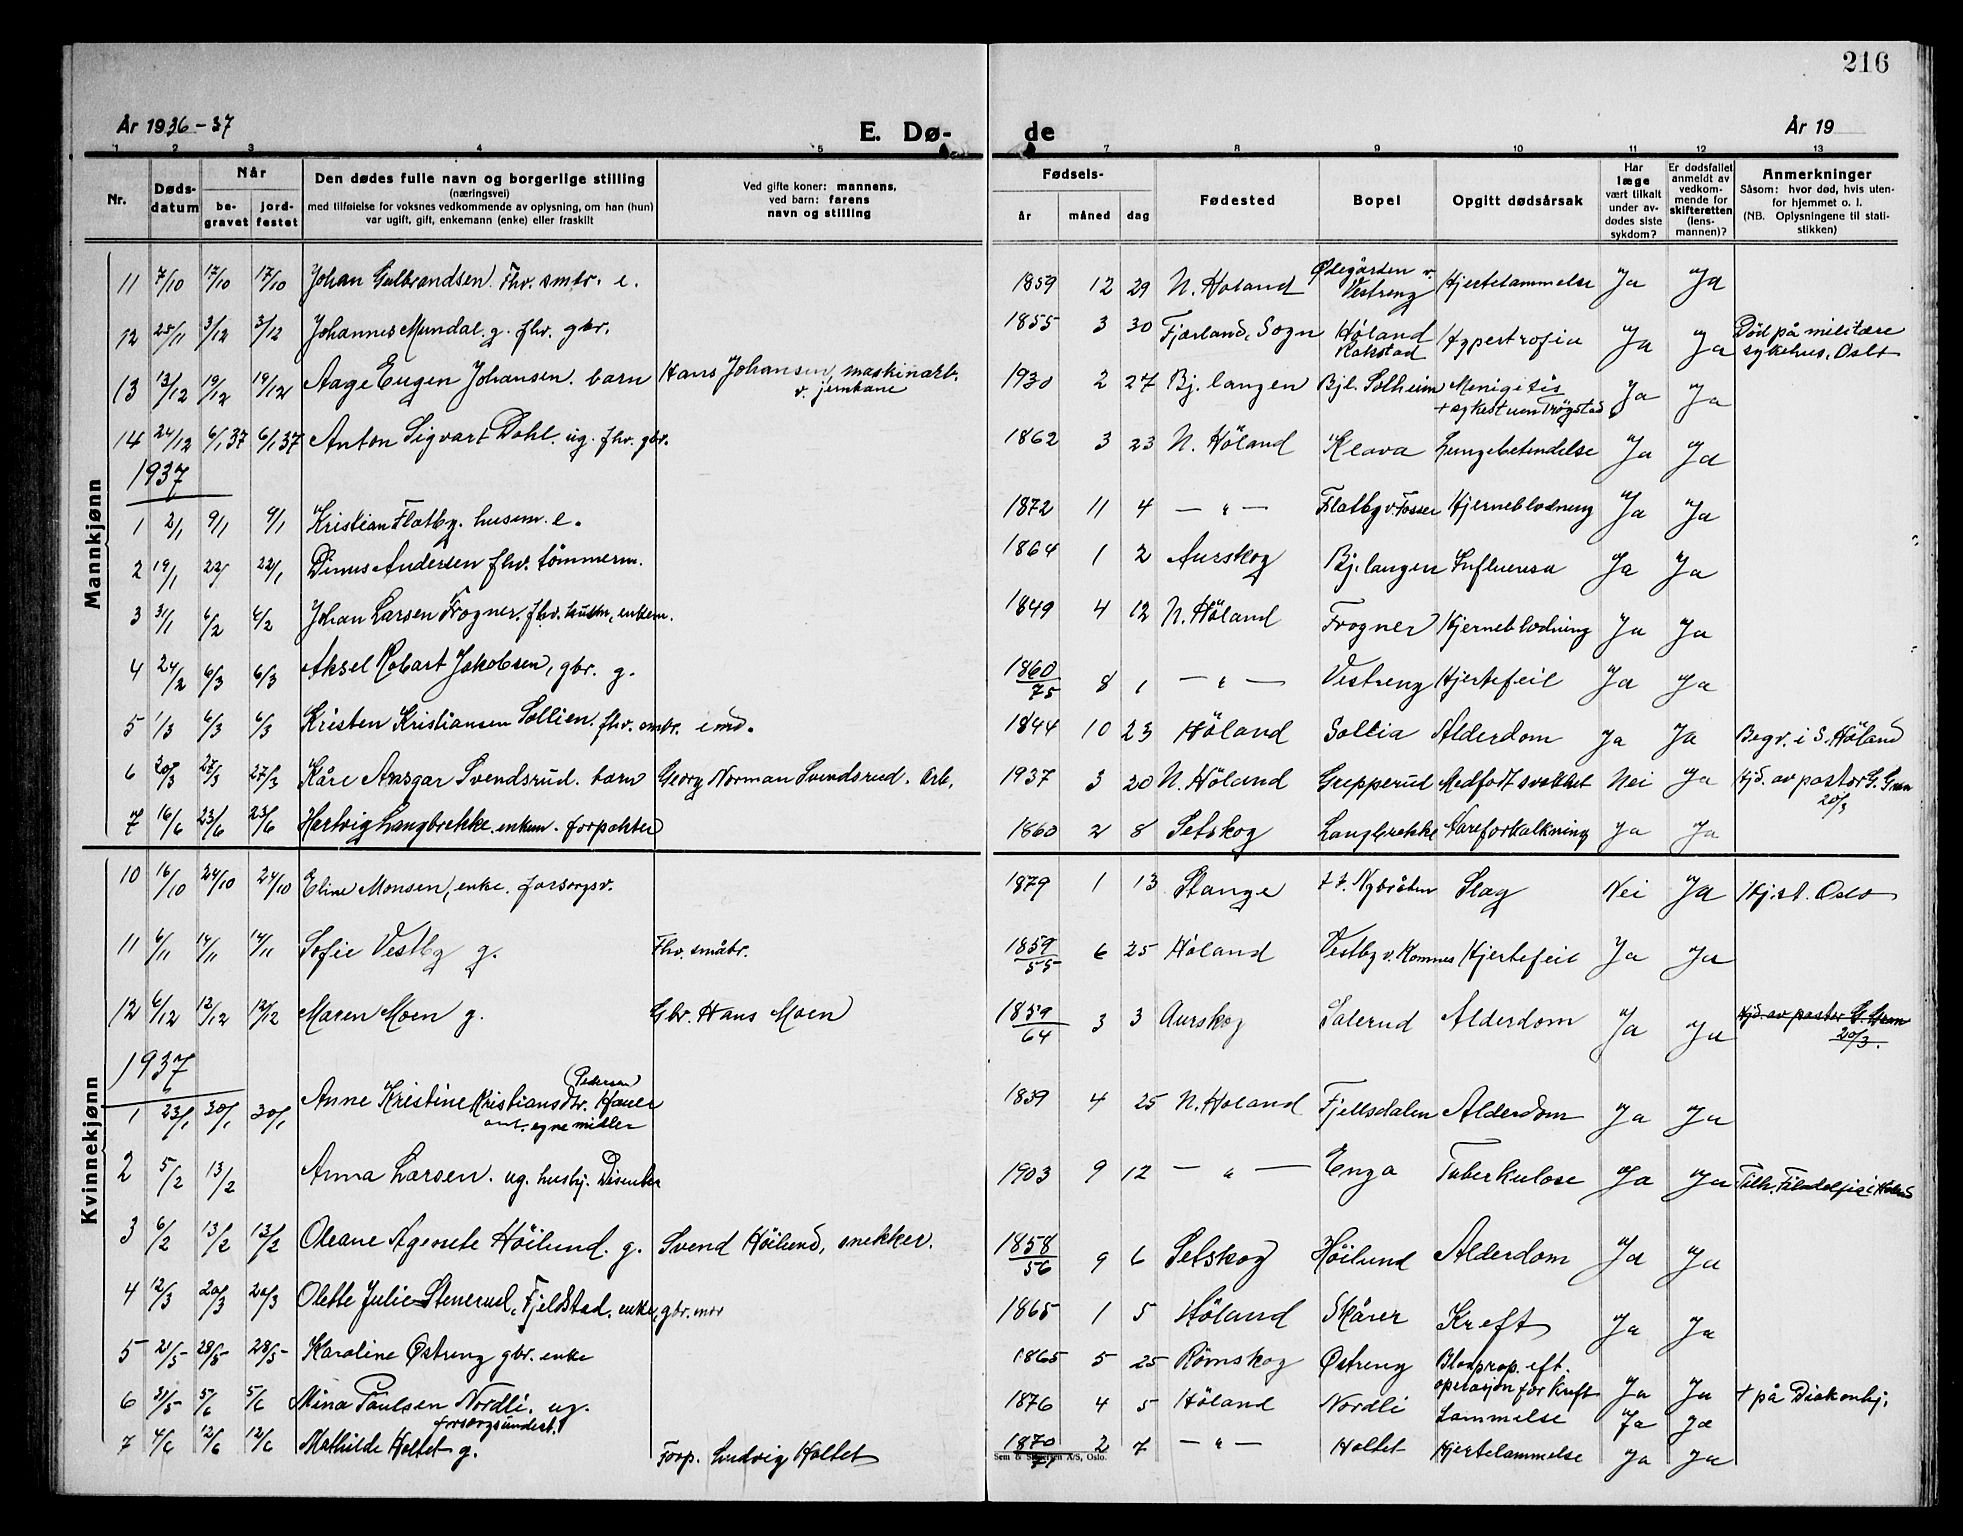 216
År 1936-37
E. Dø-
de
År 19
1 2 3 4 5 7 8 9 10 11 12 13
Nr. | Døds-datum | Når be-gravet | jord-festet | Den dødes fulle navn og borgerlige stilling (næringsvei) med tilføielse for voksnes vedkommende av oplysning, om han (hun) var ugift, gift, enkemann (enke) eller fraskilt | Ved gifte koner: mannens, ved barn: farens navn og stilling | Fødsels- år | måned | dag | Fødested | Bopel | Opgitt dødsårsak | Har læge vært tilkalt under av-dødes siste sykdom? | Er dødsfallet anmeldt av vedkom-mende for skifteretten (lens-mannen)? | Anmerkninger Såsom: hvor død, hvis uten-for hjemmet o. l. (NB. Oplysningene til stati-stikken)
Mannkjønn
11 7/10 17/10 17/10 Johan Gulbrandsen. Fhv. smbr. e. 1859 12 29 N. Høland Ødegården v. Vestreng Hjertelammelse Ja Ja
12 25/11 3/12 3/12 Johannes Mundal. g. fhv. gbr. 1855 3 30 Fjærland, Sogn Høland Rakstad Hypertrofia Ja Ja Død på militære sykehus, Oslo
13 13/12 19/12 19/12 Aage Eugen Johansen. barn Hans Johansen, maskinarb. v. jernbane 1930 2 27 Bj. langen Bjl. Solheim Menigitis + sykestuen Trøgstad Ja Ja
14 24/12 6/1 37 6/1 37 Anton Sigvart Dohl. ug. fhv. gbr. 1862 3 23 N. Höland Kløva Lungebetendelse Ja Ja
1937
1 2/1 9/1 9/1 Kristian Flatby. husm. e. 1872 11 4 — " — Flatby v. Fosser Hjerneblødning Ja Ja
2 19/1 22/ 22/1 Dinus Andersen fhv. tömmerm. 1864 1 2 Aurskog Bj. langen Influensa Ja Ja
3 31/1 6/2 6/2 Johan Larsen Frogner. fhv. husm, enkem. 1849 4 12 N. Höland Frogner Hjerneblødning Ja Ja
4 24/2 6/3 6/3 Aksel Robart Jakobsen, gbr. g. 1860/75 8 1 — " — Vestreng Hjertefeil Ja Ja
5 1/3 6/3 6/3 Kristen Kristiansen Sollien. fhv. smbr. em. 1844 10 23 Höland Sollia Alderdom Ja Ja Begv. i S. Höland
6 20/3 27/3 27/3 Kåre Ansgar Svendsrud. barn Georg Norman Svendsrud. Arb. 1937 3 20 N. Höland Grepperud Medfødt svakhet Nei Ja Hjd. av pastor G. Gran 20/3
7 16/6 23/6 23/6 Hertvig Langbrekke. enkem. forpakter 1860 2 8 Setskog Langbrekke Åreforkalkning Ja Ja
Kvinnekjønn
10 16/10 24/10 24/10 Eline Monsen, enke. forsorgsv. 1879 1 13 Stange Nybråten Slag Nei Ja Hj.st. Oslo
11 6/11 14/11 14/11 Sofie Vestby g. Fhv. småbr. 1859/55 6 25 Höland Vestby v. Komnes Hjertefeil Ja Ja
12 6/12 13/12 13/12 Maren Moen g. Gbr. Hans Moen 1859/64 3 3 Aurskog Salerud Alderdom Ja Ja Hjd. av pastor G. Gran 20/3.
1937
1 23/1 30/1 30/1 Anne Kristine Kristiansdtr. Hauer (Pedersen) egne midler 1839 4 25 N. Höland Fjellsdalen Alderdom Ja Ja
2 5/2 13/2 Anna Larsen. ug. hushj. Disenter 1903 9 12 — " — Enga Tuberkulose Ja Ja Tilh. Filadelfia i Höland
3 6/2 13/2 13/2 Oleane Agenete Höilund. g. Svend Höilund, snekker. 1858/56 9 6 Setskog Höilund Alderdom Ja Ja
4 12/3 20/3 20/3 Olette Julie Stenerud, Fjeldstad. enke, gbr. mor 1865 1 5 Höland Skårer Kreft Ja Ja
5 21/5 28/5 28/5 Karoline Østreng gbr. enke 1865 5 25 Römskog Østreng Blodprop. eft. operasjon for kreft Ja Ja + på Diakonhj.
6 31/5 5/6 5/6 Mina Paulsen Nordli. ug. forsorgsunderst. 1876 4 5 Höland Nordli Lammelse Ja Ja
7 4/6 12/6 12/6 Mathilde Holtet g. Forp. Ludvig Holtet 1870/71 2 7 — " — Holtet Hjertelammelse Ja Ja
Sem & Stenersen A/S, Oslo.